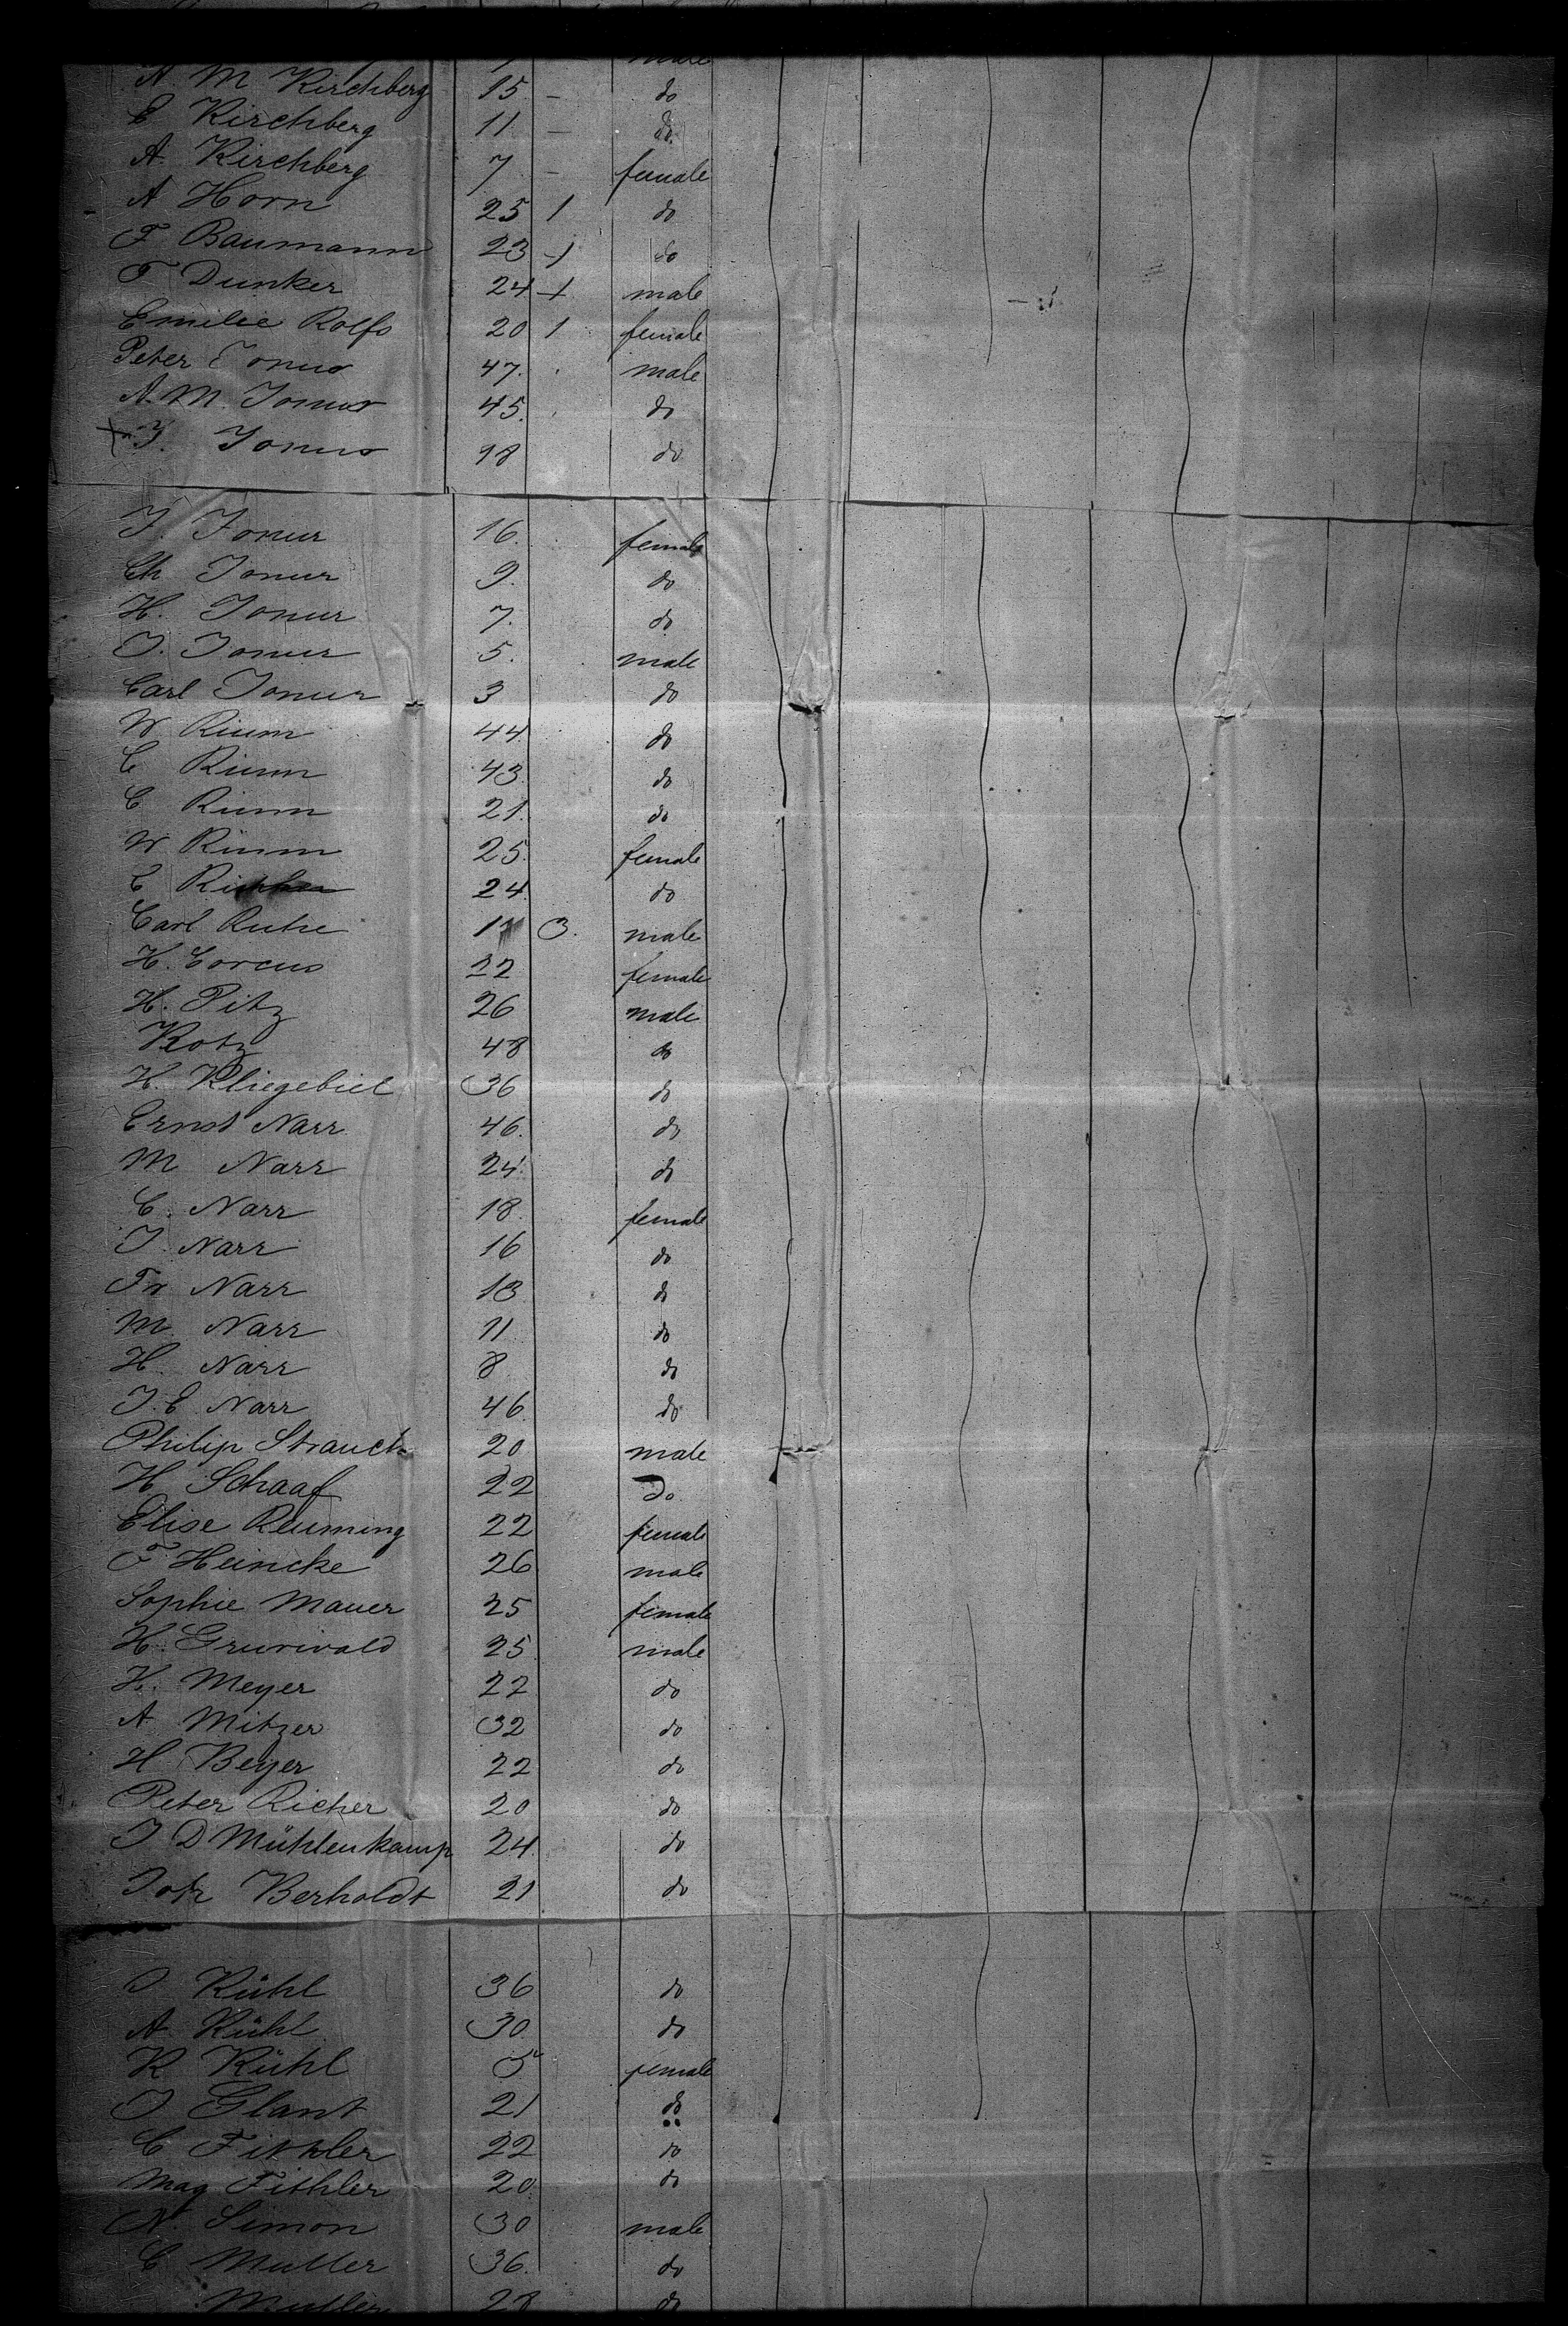 male
A M Kirchberg 15 – do
E Kirchberg 11 – do
A. Kirchberg 7 – female
A Horn 25 1 do
F Baumann 23 1 do
F Dunker 24 + male
Emilie Rolfs 20 1 female
Peter Jonus 47. male
A. M. Jonus 45. do
+ J. Jonus 18 do
J. Jonur 16. female
Ch Jonur 9. do
H. Jonur 7. do
J. Jonur 5. male
Carl Jonur 3 do
W Rium 44 do
C Rium 43 do
C Rium 21. do
W Rium 25. female
C 24. do
Carl Ruhe 3. male
H. Corcus 22 female
H. Pitz 26 male
Kotz 48 do
H. Kliegebiel 36 do
Ernst Narr 46. do
M Narr 24. do
C. Narr 18 female
J. Narr 16 do
Fr Narr 13 do
M Narr 11 do
H. Narr 8 do
J. E Narr 46 do
Philip Strauch 20 male
H. Schaaf 22 do
Elise Reuming 22 female
F Heincke 26 male
Sophie Mauer 25 female
H. Grunwald 25 male
H. Meyer 22 do
A Mitzer 32 do
H Beyer 22 do
Peter Richer 20 do
J D Mühlenkamp 24. do
Joh Berholdt 21 do
J Kühl 36 do
A. Kühl 30 do
K Kühl 5 female
J Glant 21 do
C Fithler 22 do
Mag Fithler 20 do
N. Simon 30 male
C Muller 36. do
Muller 28 do